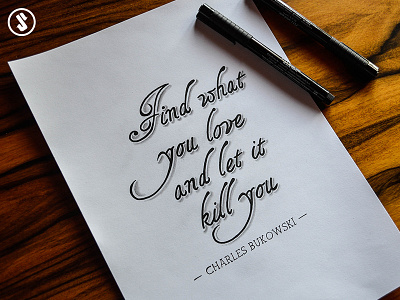 Find what
you love
and let it
kill you
— CHARLES BUKOWSKI —